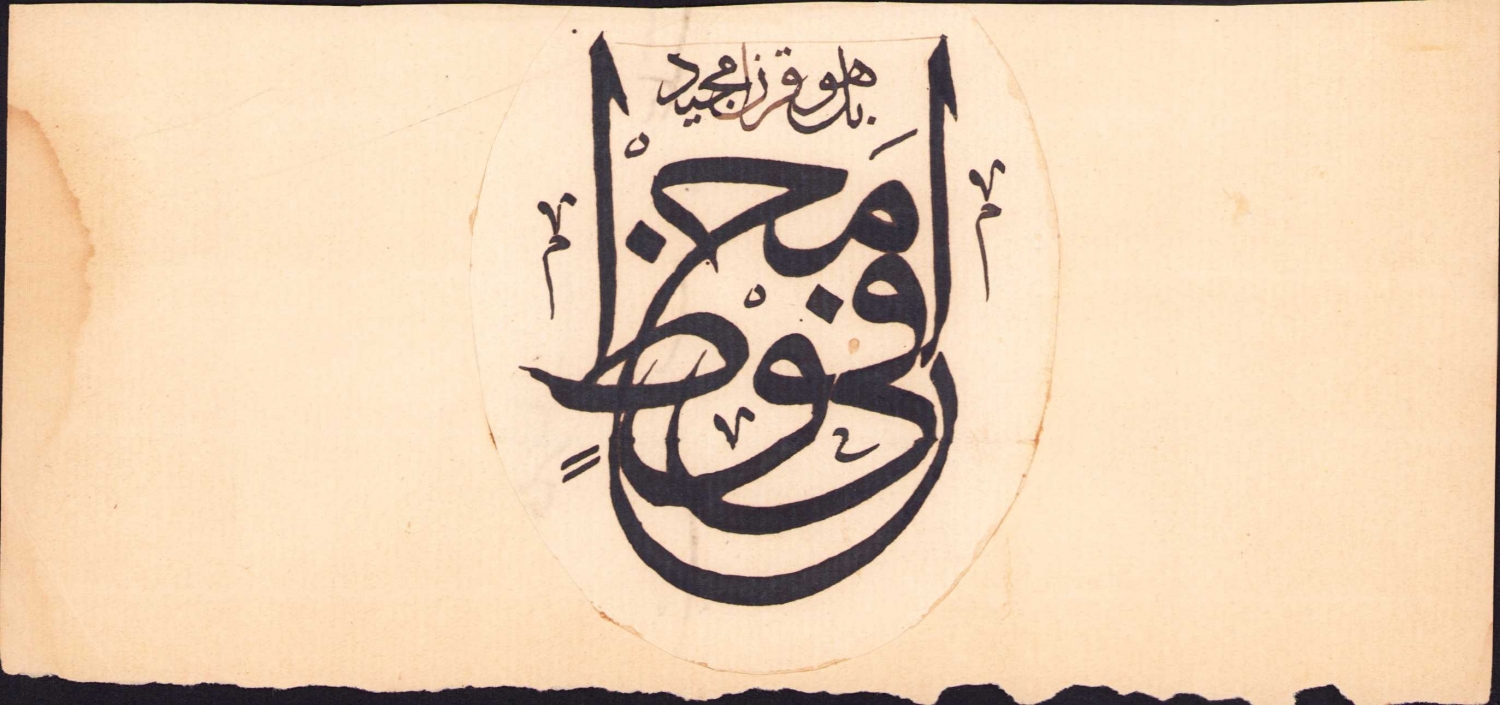 بل هو قران مجيد
في لوح مَحْفوْظٍ